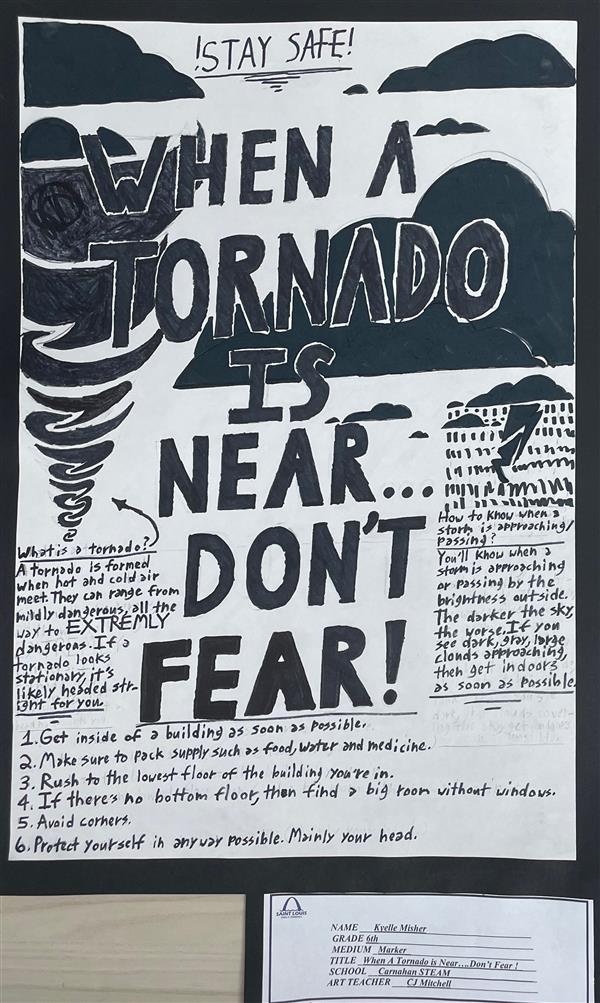 !STAY SAFE!
WHEN A
TORNADO
IS
NEAR...
DON'T
FEAR!
What is a tornado?
A tornado is formed
when hot and cold air
meet. They can range from
mildly dangerous, all the
way to EXTREMLY
dangerous. If a
tornado looks
stationary, it's
likely headed str-
ight for you.
How to know when a
storm is approaching/
passing?
You'll know when a
storm is approaching
or passing by the
brightness outside.
The darker the sky,
the worse. If you
see dark, gray, large
clouds approaching,
then get indoors
as soon as possible.
1. Get inside of a building as soon as possible.
2. Make sure to pack supply such as food, water and medicine.
3. Rush to the lowest floor of the building you're in.
4. If there's no bottom floor, then find a big room without windows.
5. Avoid corners.
6. Protect yourself in anyway possible. Mainly your head.
SAINT LOUIS
NAME Kyelle Misher
GRADE 6th
MEDIUM Marker
TITLE When A Tornado is Near....Don't Fear !
SCHOOL Carnahan STEAM
ART TEACHER CJ Mitchell